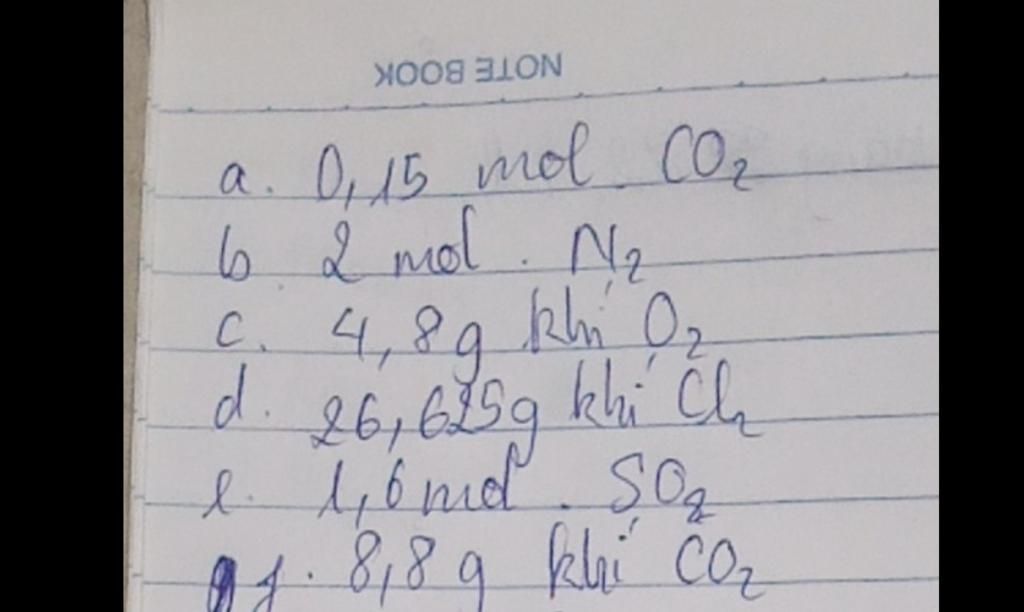 NOTE BOOK
a. 0,15 mol CO₂
b. 2 mol. N₂
c. 4,8g khí O₂
d. 26,625g khí Cl₂
e. 1,6 mol. SO₂
f. 8,8 g khí CO₂